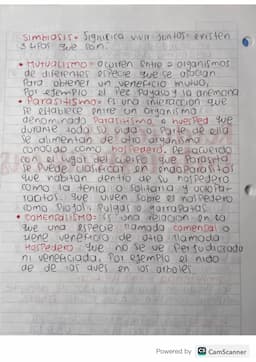 Simbiosis • Significa vivir juntos existen
3 tipos que son.
• Mutualismo • ocurren entre 2 organismos
de diferentes especie que se asocian
para obtener un veneficio mutuo,
Por ejemplo el pez payaso y la anemona
• Parasitismo • Es una interaccion que
se establece entre un organismo
denominado Parasitismo o huesped que
durante toda su vida o parte de ella
se alimentan de otro organismo
conocido como hospedero. De acuerdo
con el lugar del cuerpo que Parasita
se puede clasificar en endoparasitos
que habitan dentro de su hospedero
como la tenia o solitaria y ectopar
racitos. que viven sobre el hospedero
como Piojos, Pulgas o garrapatas
• comensalismo: Es una relacion en la
que una especie llamada comensal o
tiene veneficio de otra llamada
Hospedero que no se ve perjudicada
ni veneficiada, Por ejemplo el nido
de de las aves en los arboles.
Powered by CS CamScanner